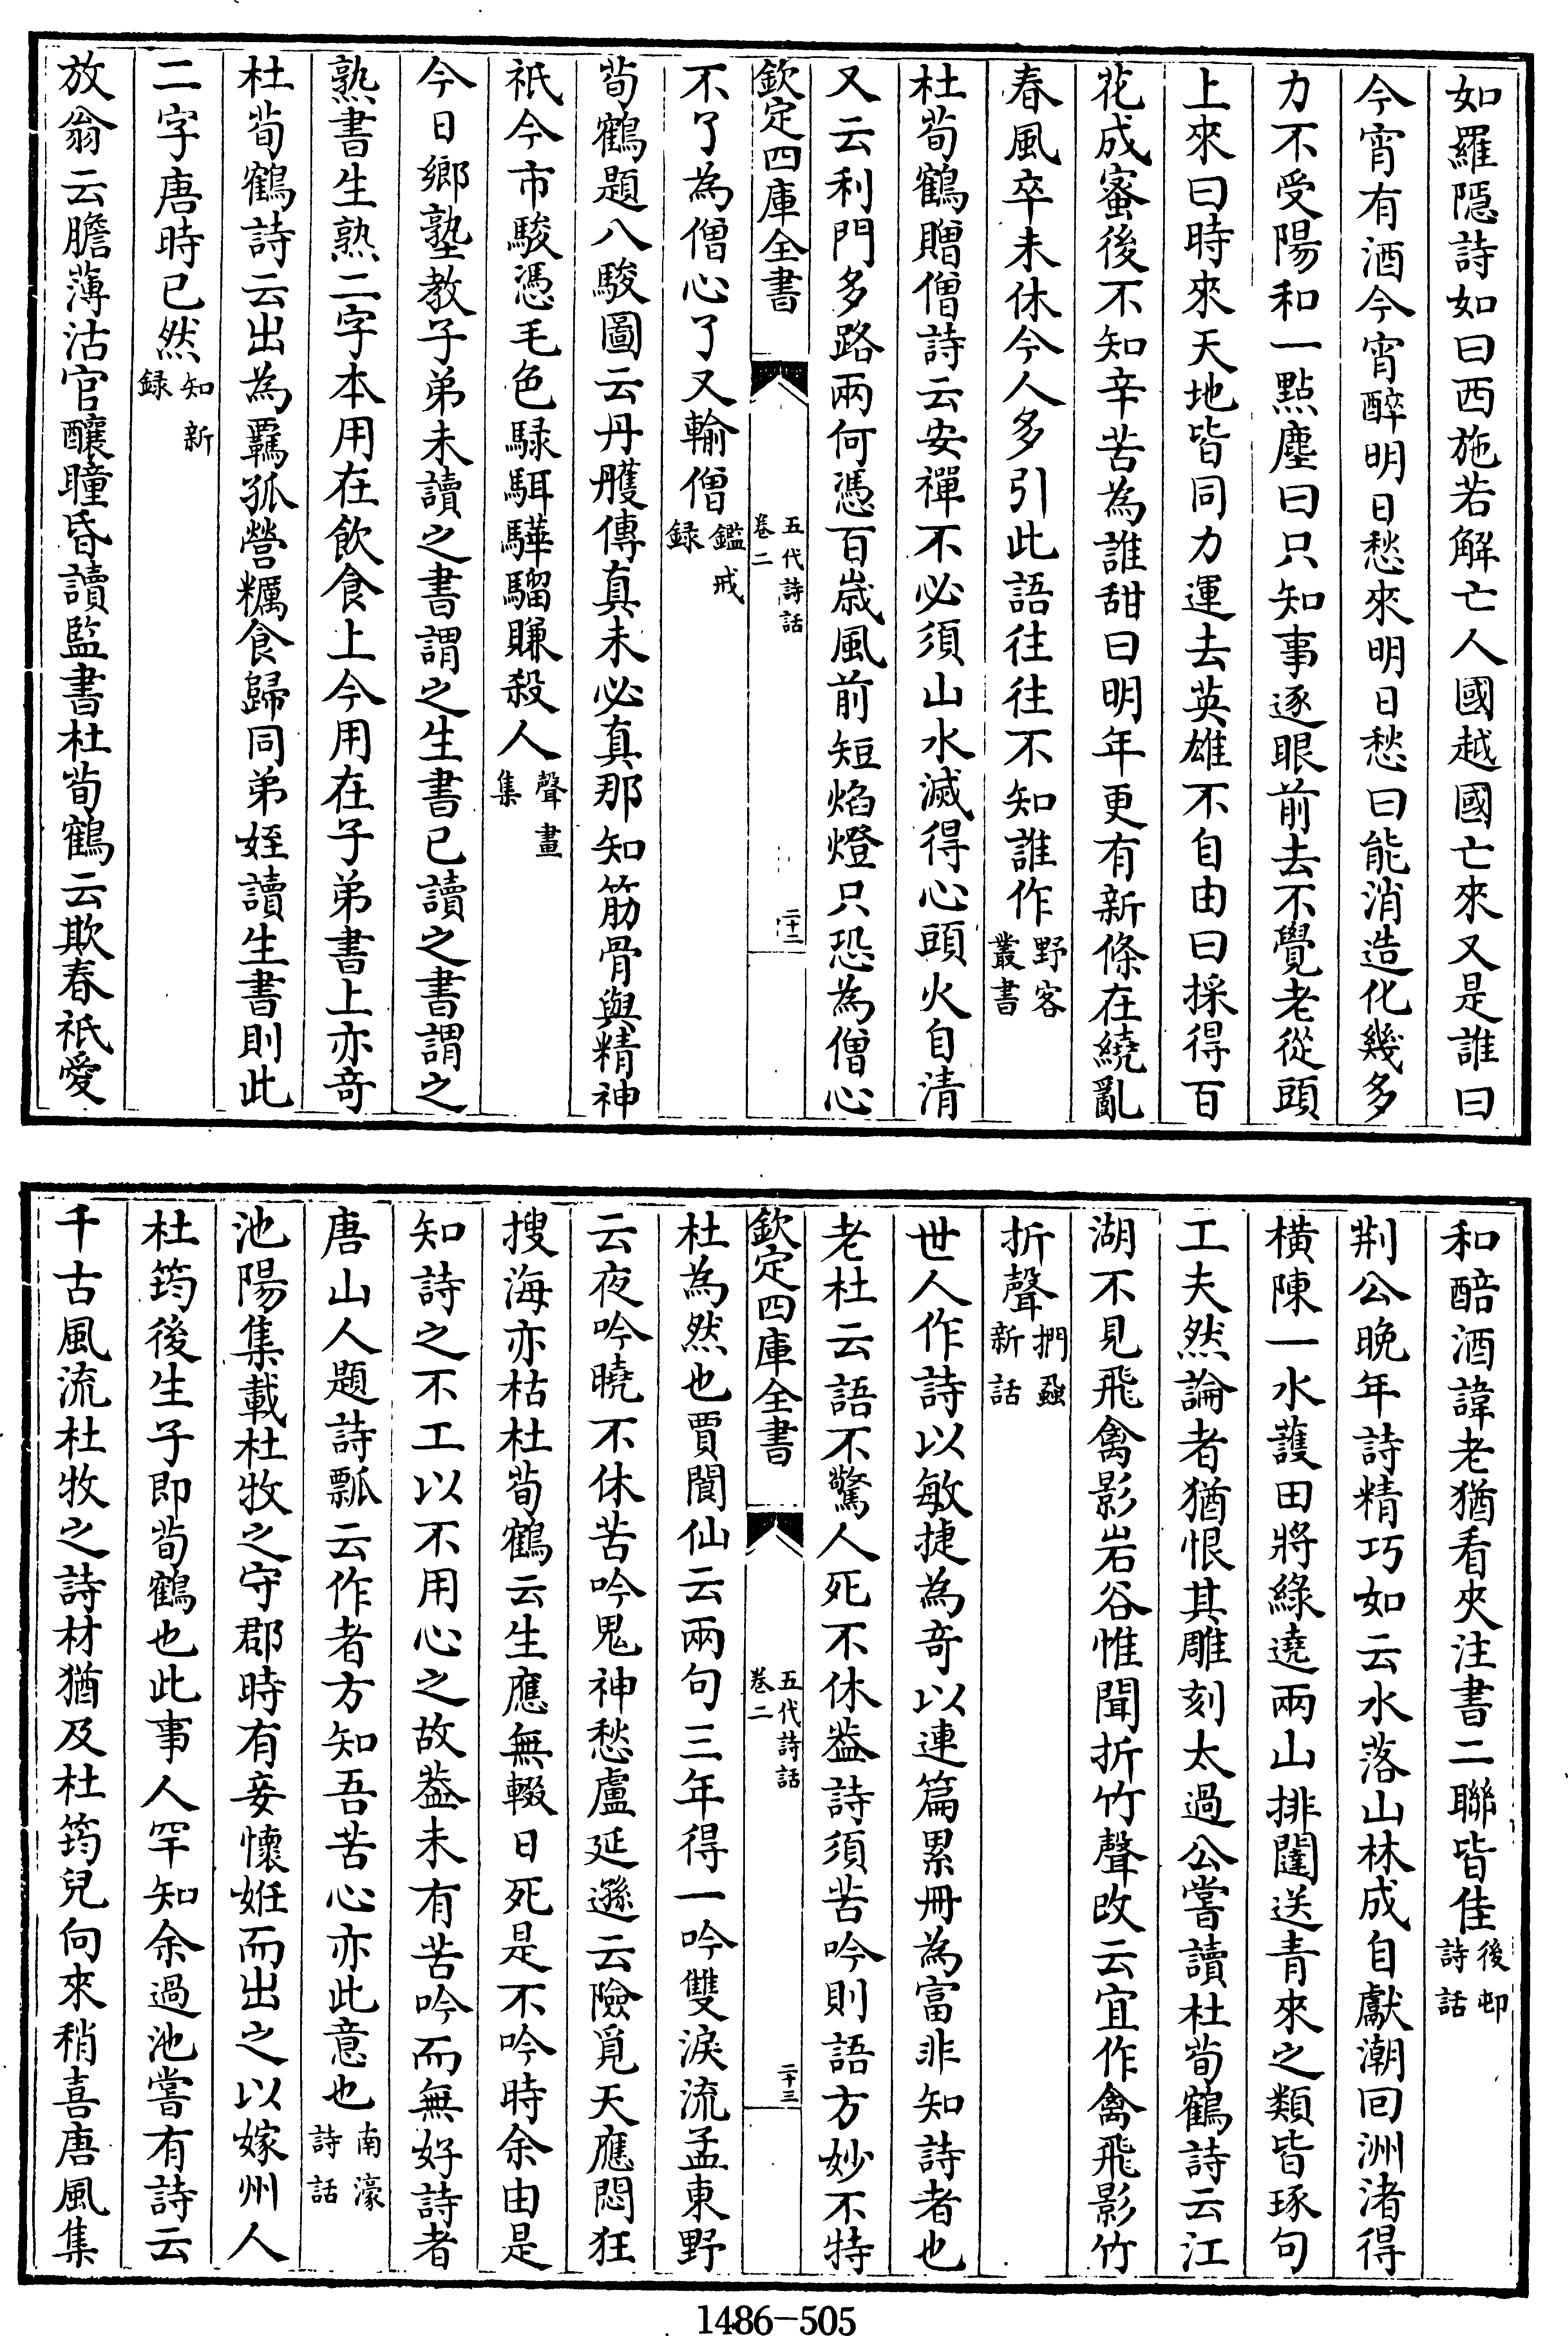 如羅隱詩如曰西施若解亡人國越國亡來又是誰曰
今宵有酒今宵醉明日愁來明日愁曰能消造化幾多
力不受陽和一點塵曰只知事逐眼前去不覺老從頭
上來曰時來天地皆同力運去英雄不自由曰採得百
花成蜜後不知辛苦為誰甜曰明年更有新條在繞亂
春風卒未休今人多引此語往往不知誰作野客叢書
杜荀鶴贈僧詩云安禪不必須山水滅得心頭火自清
又云利門多路兩何憑百歳風前短焰燈只恐為僧心
欽定四庫全書 五代詩話 卷二 二十二
不了為僧心了又輸僧鑑戒録
荀鶴題八駿圖云丹雘傳真未必真那知筋骨與精神
祇今市駿憑毛色騄駬驊騮賺殺人聲畫集
今日鄉塾教子弟未讀之書謂之生書已讀之書謂之
熟書生熟二字本用在飲食上今用在子弟書上亦竒
杜荀鶴詩云出為羈孤營糲食歸同弟姪讀生書則此
二字唐時已然知新録
放翁云膽薄沽官釀瞳昏讀監書杜荀鶴云欺春祇愛
和醅酒諱老猶看夾注書二聯皆佳後邨詩話
荆公晚年詩精巧如云水落山林成自獻潮回洲渚得
橫陳一水䕶田將綠遶兩山排闥送青來之類皆琢句
工夫然論者猶恨其雕刻太過公嘗讀杜荀鶴詩云江
湖不見飛禽影岩谷惟聞折竹聲改云宜作禽飛影竹
折聲捫蝨新話
世人作詩以敏捷為竒以連篇累冊為富非知詩者也
老杜云語不驚人死不休葢詩須苦吟則語方妙不特
欽定四庫全書 五代詩話 卷二 二十三
杜為然也賈閬仙云兩句三年得一吟雙淚流孟東野
云夜吟曉不休苦吟鬼神愁盧延遜云險覓天應悶狂
搜海亦枯杜荀鶴云生應無輟日死是不吟時余由是
知詩之不工以不用心之故葢未有苦吟而無好詩者
唐山人題詩瓢云作者方知吾苦心亦此意也南濠詩話
池陽集載杜牧之守郡時有妾懷姙而出之以嫁州人
杜筠後生子即荀鶴也此事人罕知余過池嘗有詩云
千古風流杜牧之詩材猶及杜筠兒向來稍喜唐風集
1486-505